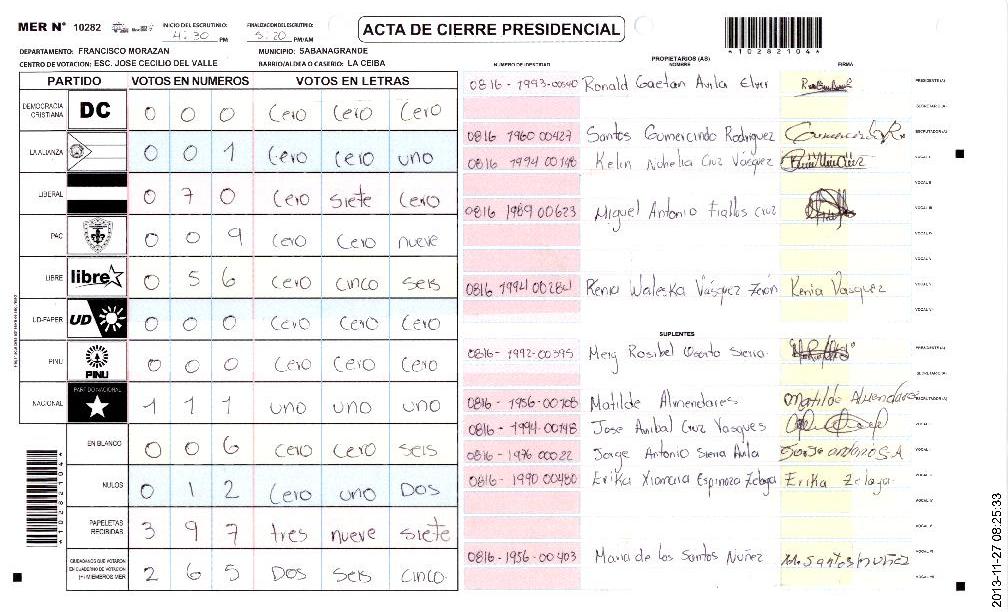 MER N° 10282
INICIO DEL ESCRUTINIO: 4:30 PM
FINALIZACION DEL ESCRUTINIO: 5:20 PM/AM
ACTA DE CIERRE PRESIDENCIAL
10282104
DEPARTAMENTO: FRANCISCO MORAZAN
MUNICIPIO: SABANAGRANDE
CENTRO DE VOTACION: ESC. JOSE CECILIO DEL VALLE
BARRIO/ALDEA O CASERIO: LA CEIBA
PARTIDO VOTOS EN NUMEROS VOTOS EN LETRAS
DEMOCRACIA CRISTIANA DC 0 0 0 Cero Cero Cero
LA ALIANZA 0 0 1 Cero Cero uno
LIBERAL 0 7 0 Cero siete Cero
PAC 0 0 9 Cero Cero nueve
LIBRE libre 0 5 6 Cero cinco seis
UD-FAPER UD 0 0 0 Cero Cero Cero
PINU PINU 0 0 0 Cero Cero Cero
NACIONAL PARTIDO NACIONAL 1 1 1 uno uno uno
EN BLANCO 0 0 6 cero Cero seis
NULOS 0 1 2 Cero uno Dos
PAPELETAS RECIBIDAS 3 9 7 tres nueve siete
CIUDADANOS QUE VOTARON EN CUADERNO DE VOTACION (+) MIEMBROS MER 2 6 5 Dos seis cinco
10282104
PROPIETARIOS (AS)
NUMERO DE IDENTIDAD NOMBRE FIRMA
0816-1993-00540 Ronald Gaetan Avila Elver PRESIDENTE(A)
SECRETARIO(A)
0816 1960 00427 Santos Gumercindo Rodriguez ESCRUTADOR(A)
0816 1994 00148 Kelin Nohelia Cruz Vásquez VOCAL I
VOCAL II
0816 1989 00623 Miguel Antonio Fiallos Cruz VOCAL III
VOCAL IV
VOCAL V
0816 1994 00284 Kenia Waleska Vásquez Zerón Kenia Vasquez
SUPLENTES
0816-1992-00395 Meriy Rosibel Osorto Sierra PRESIDENTE(A)
SECRETARIO(A)
0816-1956-00708 Matilde Almendares Matilde Almendares ESCRUTADOR(A)
0816-1994-00148 Jose Anibal Cruz Vasques VOCAL I
0816-1976 00022 Jorge Antonio Sierra Avila Jorge antonio S.A
0816-1990 00480 Erika Xiomara Espinoza Zelaya Erika Zelaya
0816-1956-00403 Maria de los Santos Nuñez M. Santos nuñez
2013-11-27 08:25:33